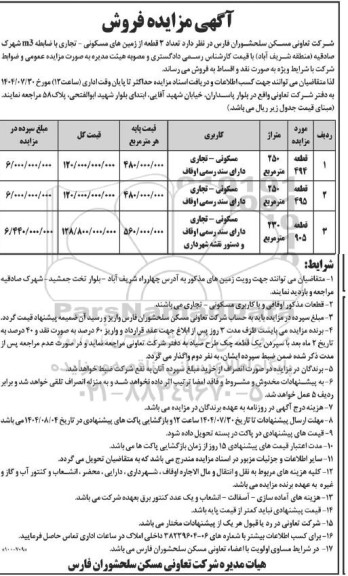 آگهی مزایده فروش
شرکت تعاونی مسکن سلحشوران فارس در نظر دارد تعداد ۳ قطعه از زمین های مسکونی - تجاری با ضابطه m3 شهرک
صادقیه (منطقه شریف آباد) با قیمت کارشناس رسمی دادگستری و مصوبه هیئت مدیره به صورت مزایده عمومی و ضوابط
شرکت با شرایط ویژه به صورت نقد و اقساط به فروش می رساند.
لذا متقاضیان می توانند جهت کسب اطلاعات و دریافت اسناد مزایده حداکثر تا پایان وقت اداری (ساعت ۱۳) مورخ ۱۴۰۴/۰۷/۳۰
به دفتر شرکت تعاونی واقع در بلوار پاسداران، خیابان شهید آقایی، ابتدای بلوار شهید ابوالفتحی، پلاک ۵۸ مراجعه نمایند.
(مبنای قیمت جدول زیر ریال می باشد)
ردیف | مورد مزایده | متراژ | کاربری | قیمت پایه هر مترمربع | قیمت کل | مبلغ سپرده در مزایده
۱ | قطعه ۴۹۴ | ۲۵۰ مترمربع | مسکونی - تجاری دارای سند رسمی اوقاف | ۴۸۰/۰۰۰/۰۰۰ | ۱۲۰/۰۰۰/۰۰۰/۰۰۰ | ۶/۰۰۰/۰۰۰/۰۰۰
۲ | قطعه ۴۹۵ | ۲۵۰ مترمربع | مسکونی - تجاری دارای سند رسمی اوقاف | ۴۸۰/۰۰۰/۰۰۰ | ۱۲۰/۰۰۰/۰۰۰/۰۰۰ | ۶/۰۰۰/۰۰۰/۰۰۰
۳ | قطعه ۹۰۵ | ۲۳۰ مترمربع | مسکونی - تجاری دارای سند رسمی اوقاف و دستور نقشه شهرداری | ۵۶۰/۰۰۰/۰۰۰ | ۱۲۸/۸۰۰/۰۰۰/۰۰۰ | ۶/۴۴۰/۰۰۰/۰۰۰
شرایط:
۱- متقاضیان می توانند جهت رویت زمین های مذکور به آدرس چهارراه شریف آباد - بلوار تخت جمشید - شهرک صادقیه
مراجعه و بازدید نمایند.
۲- قطعات مذکور اوقافی و با کاربری مسکونی - تجاری می باشند.
۳- مبلغ سپرده در مزایده باید به حساب شرکت تعاونی مسکن سلحشوران فارس واریز و رسید آن ضمیمه پیشنهاد قیمت گردد.
۴- برنده مزایده می بایست ظرف مدت ۳ روز پس از ابلاغ جهت عقد قرارداد و واریز ۶۰ درصد به صورت نقد و ۴۰ درصد به
تاریخ ۲ ماه بعد با سپردن یک قطعه چک طرح صیاد به دفتر شرکت تعاونی مراجعه نماید و در صورت عدم مراجعه پس از
مدت ذکر شده ضمن ضبط سپرده ایشان، به نفر دوم واگذار می گردد.
۵- برندگان در مزایده در صورت انصراف از خرید مبلغ سپرده آنان به نفع شرکت ضبط خواهد شد.
۶- به پیشنهادات مخدوش و مشروط و فاقد امضا ترتیب اثر داده نخواهد شد و به منزله انصراف تلقی خواهد شد و برابر
ردیف ۵ عمل خواهد شد.
۷- هزینه درج آگهی در روزنامه به عهده برندگان در مزایده می باشد.
۸- مهلت ارسال پیشنهادات تا تاریخ ۱۴۰۴/۰۷/۳۰ ساعت ۱۲ و بازگشایی پاکت های پیشنهادی در تاریخ ۱۴۰۴/۰۸/۰۴ می باشد
۹- قیمت های پیشنهادی در پاکت در بسته تحویل داده شود.
۱۰- مدت اعتبار قیمت های پیشنهادی ۱۵ روز از زمان بازگشایی پاکت ها می باشد.
۱۱- سایر اطلاعات و جزئیات مزبور در اسناد مزایده مندرج می باشد که به متقاضیان تحویل می گردد.
۱۲- کلیه هزینه های مربوط به نقل و انتقال و مال الاجاره اوقاف، شهرداری، دارایی، محضر، انشعاب و کنتور آب و گاز و
غیره به عهده برنده مزایده می باشد.
۱۳- هزینه های آماده سازی - آسفالت - انشعاب و یک عدد کنتور برق بعهده شرکت می باشد.
۱۴- قیمت پیشنهادی نباید کمتر از قیمت پایه باشد.
۱۵- شرکت تعاونی در رد یا قبول هر یک از پیشنهادات مختار می باشد.
۱۶- برای کسب اطلاعات بیشتر با شماره های ۰۶-۳۸۲۳۹۶۰۴ داخلی املاک در ساعات اداری تماس حاصل فرمایید.
۱۷- در شرایط مساوی اولویت با اعضاء تعاونی مسکن سلحشوران فارس می باشد.
هیات مدیره شرکت تعاونی مسکن سلحشوران فارس